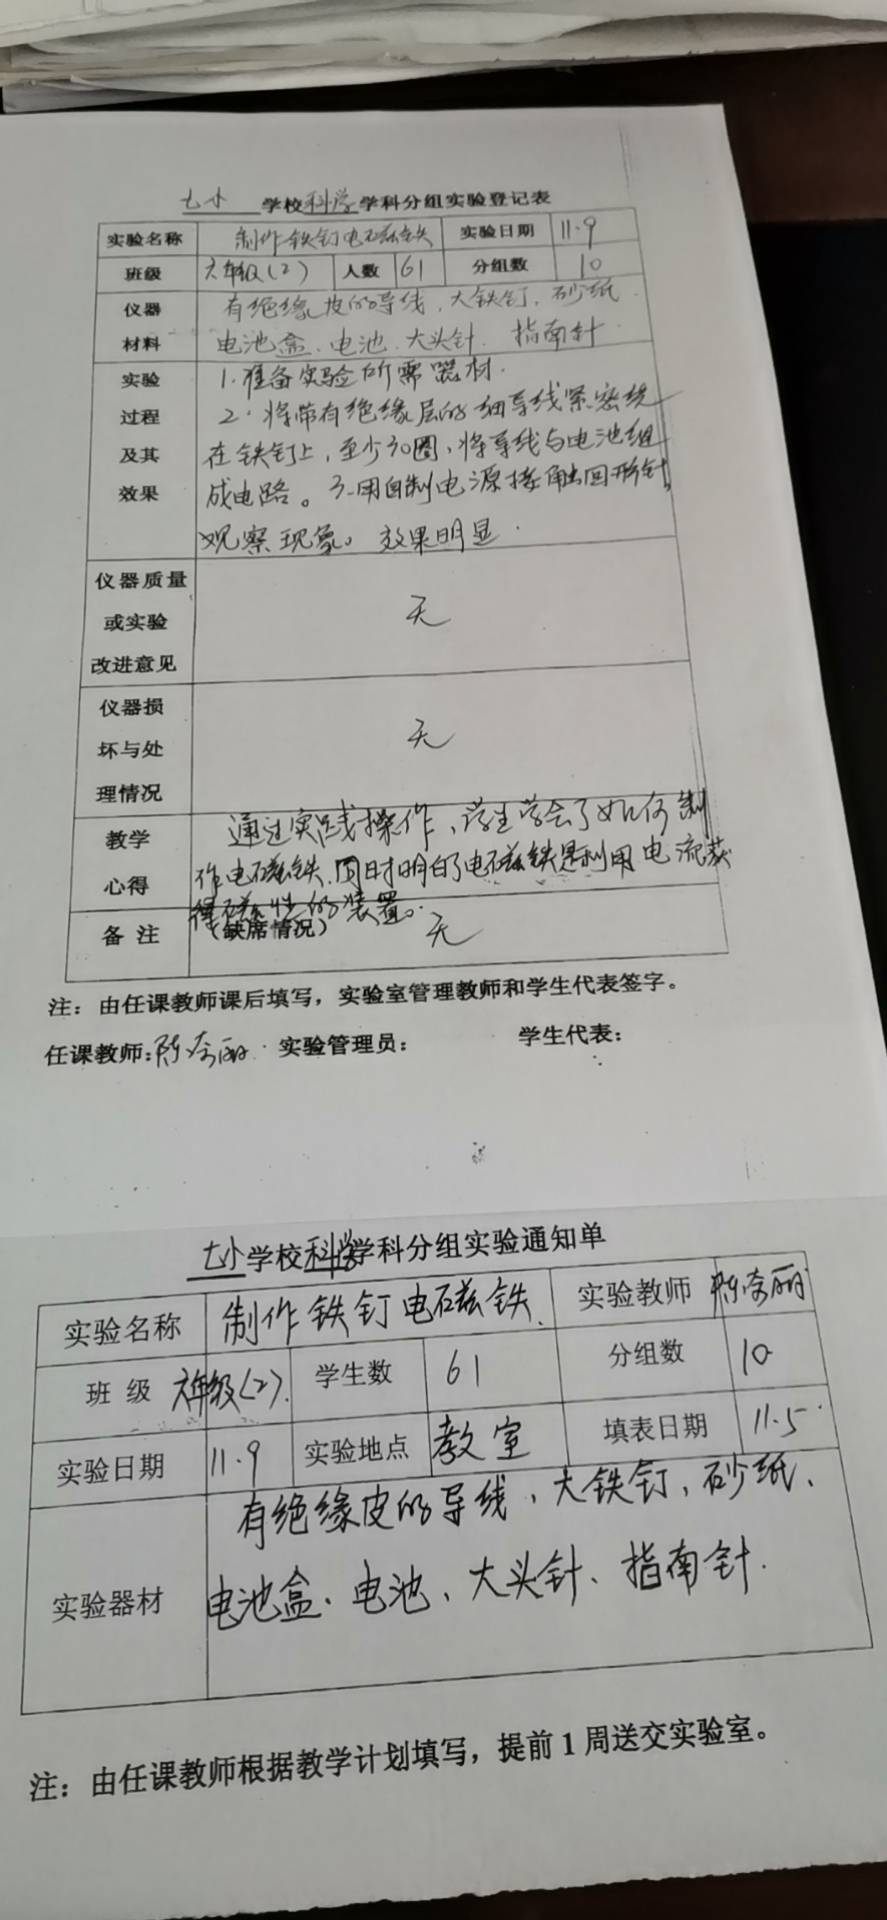 七小 学校 科学 学科分组实验登记表
实验名称 制作铁钉电磁铁 实验日期 11.9
班级 六年级(2) 人数 61 分组数 10
仪器 有绝缘皮的导线、大铁钉、砂纸、
材料 电池盒、电池、大头针、指南针.
实验 1.准备实验所需器材.
过程 2.将带有绝缘层的细导线紧密绕
及其 在铁钉上,至少30圈,将导线与电池组
效果 成电路。3.用自制电源接触回形针,
观察现象。效果明显.
仪器质量
或实验 无
改进意见
仪器损
坏与处 无
理情况
教学 通过实践操作,学生学会了如何制
心得 作电磁铁,同时明白了电磁铁是利用电流获
得磁性的装置。
备注 (缺席情况) 无
注:由任课教师课后填写,实验室管理教师和学生代表签字。
任课教师: 实验管理员: 学生代表:
七小学校科学学科分组实验通知单
实验名称 制作铁钉电磁铁. 实验教师
班 级 六年级(2). 学生数 61 分组数 10
实验日期 11.9 实验地点 教室 填表日期 11.5.
有绝缘皮的导线、大铁钉、砂纸、
实验器材 电池盒、电池、大头针、指南针.
注:由任课教师根据教学计划填写,提前1周送交实验室。